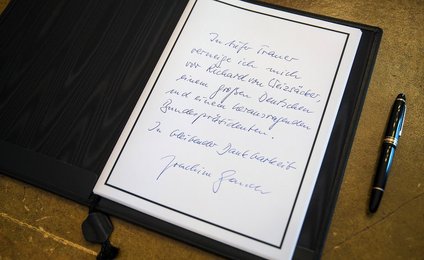 In tiefer Trauer
verneige ich mich
vor Richard von Weizsäcker,
einem großen Deutschen
und einem herausragenden
Bundespräsidenten.
In bleibender Dankbarkeit
Joachim Gauck